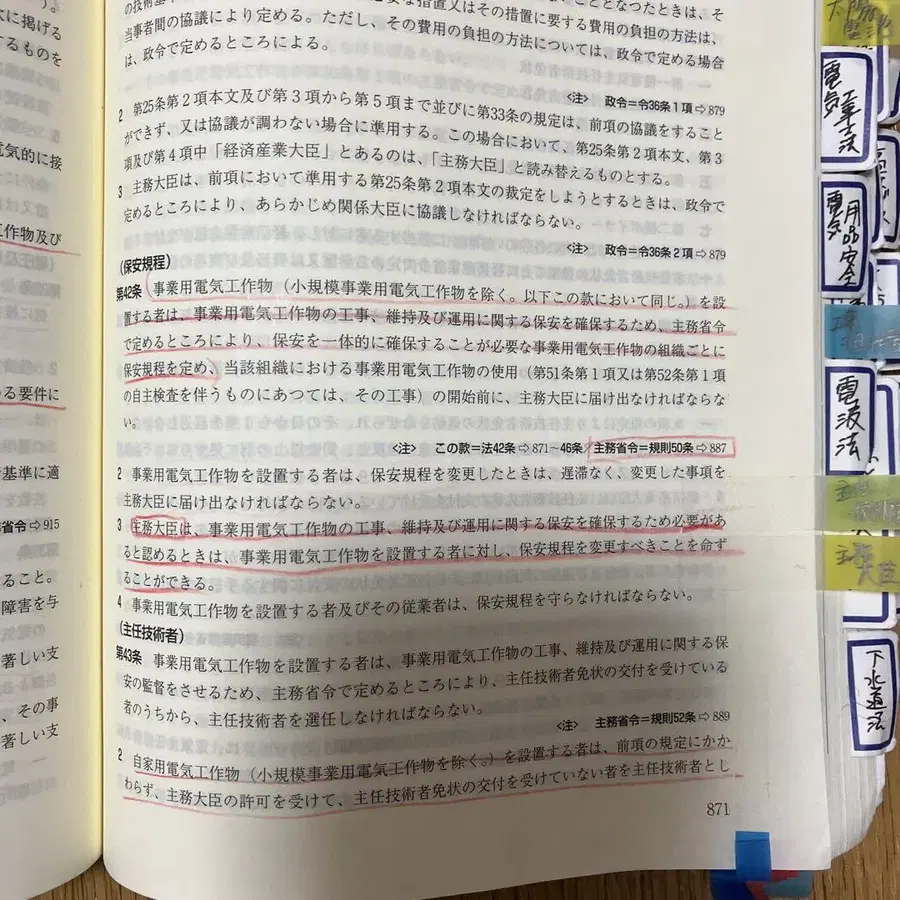 に掲げる
するものを
電気的に接
工作物及び
る要件に
基準に適
省令⇨915
ること。
障害を与
著しい支
、その事
著しい支
当事者間の協議により定める。ただし、その費用の負担の方法については、政令で定める場合
は、政令で定めるところによる。
<注> 政令=令36条1項⇨879
2 第25条第2項本文及び第3項から第5項まで並びに第33条の規定は、前項の協議をすること
ができず、又は協議が調わない場合に準用する。この場合において、第25条第2項本文、第3
項及び第4項中「経済産業大臣」とあるのは、「主務大臣」と読み替えるものとする。
3 主務大臣は、前項において準用する第25条第2項本文の裁定をしようとするときは、政令で
定めるところにより、あらかじめ関係大臣に協議しなければならない。
<注> 政令=令36条2項⇨879
(保安規程)
第42条 事業用電気工作物(小規模事業用電気工作物を除く。以下この款において同じ。)を設
置する者は、事業用電気工作物の工事、維持及び運用に関する保安を確保するため、主務省令
で定めるところにより、保安を一体的に確保することが必要な事業用電気工作物の組織ごとに
保安規程を定め、当該組織における事業用電気工作物の使用(第51条第1項又は第52条第1項
の自主検査を伴うものにあつては、その工事)の開始前に、主務大臣に届け出なければならな
い。
<注> この款=法42条⇨871~46条/主務省令=規則50条⇨887
2 事業用電気工作物を設置する者は、保安規程を変更したときは、遅滞なく、変更した事項を
主務大臣に届け出なければならない。
3 主務大臣は、事業用電気工作物の工事、維持及び運用に関する保安を確保するため必要があ
ると認めるときは、事業用電気工作物を設置する者に対し、保安規程を変更すべきことを命ず
ることができる。
4 事業用電気工作物を設置する者及びその従業者は、保安規程を守らなければならない。
(主任技術者)
第43条 事業用電気工作物を設置する者は、事業用電気工作物の工事、維持及び運用に関する保
安の監督をさせるため、主務省令で定めるところにより、主任技術者免状の交付を受けている
者のうちから、主任技術者を選任しなければならない。
<注> 主務省令=規則52条⇨889
2 自家用電気工作物(小規模事業用電気工作物を除く。)を設置する者は、前項の規定にかか
わらず、主務大臣の許可を受けて、主任技術者免状の交付を受けていない者を主任技術者とし
871
電気工事士法
電気用品安全
電波法
下水道法